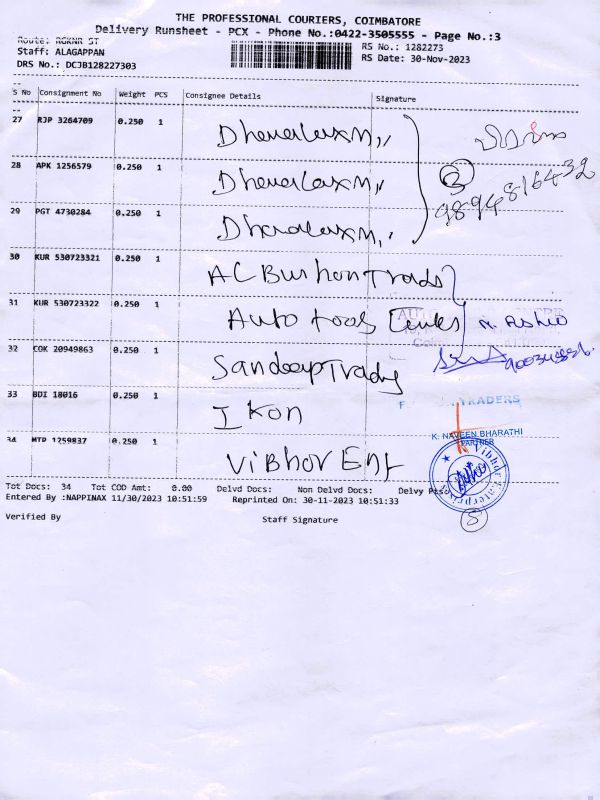 THE PROFESSIONAL COURIERS, COIMBATORE
Delivery Runsheet - PCX - Phone No.:0422-3505555 - Page No.:3
Route: RGKNR ST
RS No.: 1282273
Staff: ALAGAPPAN
RS Date: 30-Nov-2023
DRS No.: DCJB128227303
S No Consignment No Weight PCS Consignee Details Signature
27 RJP 3264709 0.250 1 Dhanalaxmi,,
28 APK 1256579 0.250 1 Dhanalaxmi,,
3
9894816432
29 PGT 4730284 0.250 1 Dhanalaxmi,,
30 KUR 530723321 0.250 1 AC Bushan Trads
31 KUR 530723322 0.250 1 Auto tools
32 COK 20949863 0.250 1 Sandeep Trady
33 BDI 18016 0.250 1 I Kon
TRADERS
K. NAVEEN BHARATHI
PARTNER
34 MTP 1259837 0.250 1 ViBhor Ent
Vibhor Enterprises
Tot Docs: 34 Tot COD Amt: 0.00 Delvd Docs: Non Delvd Docs: Delvy Pts:
Entered By :NAPPINAX 11/30/2023 10:51:59 Reprinted On: 30-11-2023 10:51:33
8
Verified By Staff Signature